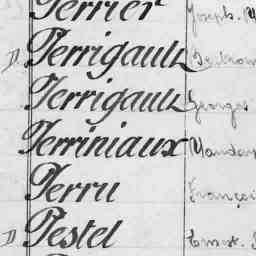 Perrier Joseph.
D Perrigault
Perrigault Georges
Perriniaux
Perru François
D Pestel Ernest.